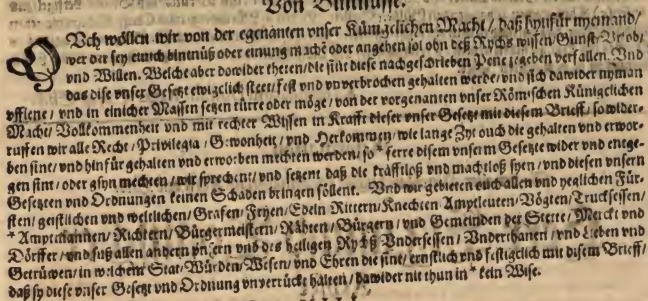 Von Büntnüsse.
Och wöllen wir von der egenanten vnser Künigclichen Macht / daß hynfür nyemand /
wer der sey einich bintnüß oder einung mache oder angehen sol ohn deß Rychs wissen / Gunst / Vrlob /
vnd Willen. Welche aber dowider theten / die sint diese nachgeschrieben Pene zegeben verfallen. Vnd
das dise vnser Gesetze ewigclich steet / fest vnd vnverbrochen gehalten werde / vnd sich dawider nyman
vfflene / vnd in einicher Massen setzen türre oder möge / von der vorgenanten vnser Römischen Künigclichen
Macht / Vollkommenheit vnd mit rechter Wissen in Krafft dieser vnser Gesetze mit diesem Brieff / so wider-
ruffen wir alle Recht / Privilegia / Gewonheit / vnd Herkommen / wie lange Zyt ouch die gehalten vnd erwor-
ben sint / vnd hinfür gehalten vnd erworben mechten werden / so * ferre disem vnserm Gesetze wider vnd entge-
gen sint / oder gsyn mechten / wir sprechent / vnd setzent daß die kräfftloß vnd machtloß syen / vnd diesen vnsern
Gesetzen vnd Ordnungen keinen Schaden bringen söllent. Vnd wir gebieten euch allen vnd yeglichen Für-
sten / geistlichen vnd weltlichen / Grafen / Fryen / Edeln Rittern / Knechten / Amptleuten / Vögten / Truckseisen /
* Amptmannen / Richtern / Bürgermeistern / Rähten / Bürgern / vnd Gemeinden der Stette / Merckt vnd
Dörffer / vnd suß allen andern vnsern vnd des heiligen Rychß Vnderseissen / Vnderthanen / vnd Lieben vnd
Getrüwen / in welchem Stat / Würden / Wesen / vnd Ehren die sint / ernstlich vnd festigclich mit disem Brieff /
daß sy diese vnser Gesetze vnd Ordnung vnverrückt halten / dawider nit thun in * kein Wise.